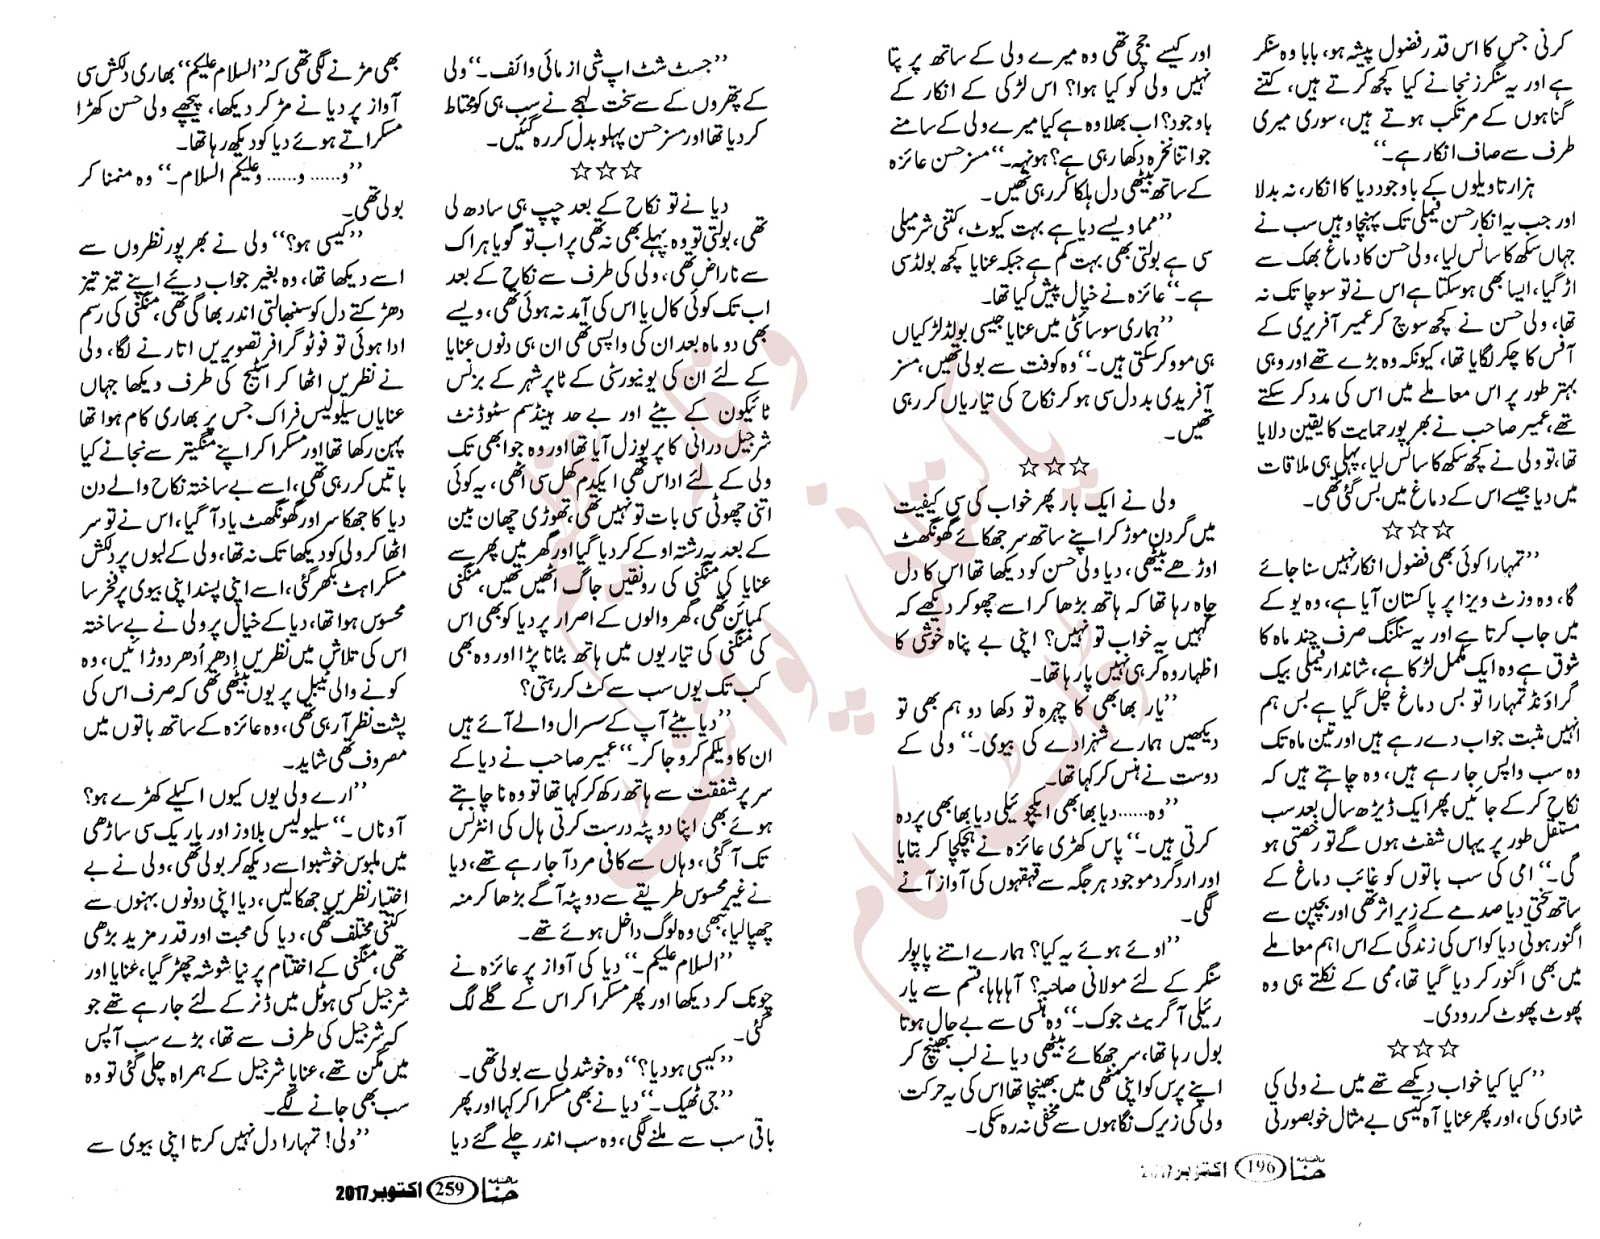 کرنی جس کا اس قدر فضول پیشہ ہو، بابا وہ سنگر
ہے اور یہ سنگرز نجانے کیا کچھ کرتے ہیں، کتنے
گناہوں کے مرتکب ہوتے ہیں، سوری میری
طرف سے صاف انکار ہے۔‘‘
ہزار تاویلوں کے باوجود دیا کا انکار، نہ بدلا
اور جب یہ انکار حسن فیملی تک پہنچا وہیں سب نے
جہاں سکھ کا سانس لیا، ولی حسن کا دماغ بھک سے
اڑ گیا، ایسا بھی ہو سکتا ہے اس نے تو سوچا تک نہ
تھا، ولی حسن نے کچھ سوچ کر عمیر آفریری کے
آفس کا چکر لگایا تھا، کیونکہ وہ بڑے تھے اور وہی
بہتر طور پر اس معاملے میں اس کی مدد کر سکتے
تھے، عمیر صاحب نے بھرپور حمایت کا یقین دلایا
تھا، تو ولی نے کچھ سکھ کا سانس لیا، پہلی ہی ملاقات
میں دیا جیسے اس کے دماغ میں بس گئی تھی۔
☆☆☆
’’تمہارا کوئی بھی فضول انکار نہیں سنا جائے
گا، وہ وزٹ ویزا پر پاکستان آیا ہے، وہ یو کے
میں جاب کرتا ہے اور یہ سنگنگ صرف چند ماہ کا
شوق ہے وہ ایک مکمل لڑکا ہے، شاندار فیملی بیک
گراؤنڈ تمہارا تو بس دماغ چل گیا ہے بس ہم
انہیں مثبت جواب دے رہے ہیں اور تین ماہ تک
وہ سب واپس جا رہے ہیں، وہ چاہتے ہیں کہ
نکاح کر کے جائیں پھر ایک ڈیڑھ سال بعد سب
مستقل طور پر یہاں شفٹ ہوں گے تو رخصتی ہو
گی۔‘‘ امی کی سب باتوں کو غائب دماغ کے
ساتھ سنتی دیا صدمے کے زیر اثر تھی اور بچپن سے
اگنور ہوئی دیا کو اس کی زندگی کے اس اہم معاملے
میں بھی اگنور کر دیا گیا تھا، ممی کے نکلتے ہی وہ
پھوٹ پھوٹ کر رو دی۔
☆☆☆
’’کیا کیا خواب دیکھے تھے میں نے ولی کی
شادی کی، اور پھر عنایا آہ کیسی بے مثال خوبصورتی
اور کیسے جچی تھی وہ میرے ولی کے ساتھ پر پتا
نہیں ولی کو کیا ہوا؟ اس لڑکی کے انکار کے
باوجود؟ اب بھلا وہ ہے کیا میرے ولی کے سامنے
جو اتنا نخرہ دکھا رہی ہے؟ ہونہہ۔‘‘ مسز حسن عائزہ
کے ساتھ بیٹھی دل ہلکا کر رہی تھیں۔
’’مما ویسے دیا ہے بہت کیوٹ، کتنی شرمیلی
سی ہے بولتی بھی بہت کم ہے جبکہ عنایا کچھ بولڈ سی
ہے۔‘‘ عائزہ نے خیال پیش کیا تھا۔
’’ہماری سوسائٹی میں عنایا جیسی بولڈ لڑکیاں
ہی موو کر سکتی ہیں۔‘‘ وہ کوفت سے بولی تھیں، مسز
آفریدی بددل سی ہو کر نکاح کی تیاریاں کر رہی
تھیں۔
☆☆☆
ولی نے ایک بار پھر خواب کی سی کیفیت
میں گردن موڑ کر اپنے ساتھ سر جھکائے گھونگھٹ
اوڑھے بیٹھی، دیا ولی حسن کو دیکھا تھا اس کا دل
چاہ رہا تھا کہ ہاتھ بڑھا کر اسے چھو کر دیکھے کہ
کہیں یہ خواب تو نہیں؟ اپنی بے پناہ خوشی کا
اظہار وہ کر ہی نہیں پا رہا تھا۔
’’یار بھابھی کا چہرہ تو دکھا دو ہم بھی تو
دیکھیں ہمارے شہزادے کی بیوی۔‘‘ ولی کے
دوست نے ہنس کر کہا تھا۔
’’وہ...... دیا بھابھی ایکچوئیلی دیا بھابھی پردہ
کرتی ہیں۔‘‘ پاس کھڑی عائزہ نے ہچکچا کر بتایا
اور اردگرد موجود ہر جگہ سے قہقہوں کی آواز آنے
لگی۔
’’اوئے ہوئے یہ کیا؟ ہمارے اتنے پاپولر
سنگر کے لئے مولانی صاحبہ؟ آہاہاہا، قسم سے یار
رئیلی آ گریٹ جوک۔‘‘ وہ ہنسی سے بے حال ہوتا
بول رہا تھا، سر جھکائے بیٹھی دیا نے لب بھینچ کر
اپنے پرس کو اپنی مٹھی میں بھینچا تھا اس کی یہ حرکت
ولی کی زیرک نگاہوں سے مخفی نہ رہ سکی۔
ماہنامہ حنا 196 اکتوبر 2017
’’جسٹ شٹ اپ شی از مائی وائف۔‘‘ ولی
کے پتھروں کے سے سخت لہجے نے سب ہی کو محتاط
کر دیا تھا اور مسز حسن پہلو بدل کر رہ گئیں۔
☆☆☆
دیا نے تو نکاح کے بعد چپ ہی سادھ لی
تھی، بولتی تو وہ پہلے بھی نہ تھی پر اب تو گویا ہر اک
سے ناراض تھی، ولی کی طرف سے نکاح کے بعد
اب تک کوئی کال یا اس کی آمد نہ ہوئی تھی، ویسے
بھی دو ماہ بعد ان کی واپسی تھی ان ہی دنوں عنایا
کے لئے ان کی یونیورسٹی کے ٹاپر شہر کے بزنس
ٹائیکون کے بیٹے اور بے حد ہینڈسم سٹوڈنٹ
شرجیل درانی کا پرپوزل آیا تھا اور وہ جو ابھی تک
ولی کے لئے اداس تھی ایکدم کھل سی اٹھی، یہ کوئی
اتنی چھوٹی سی بات تو نہیں تھی، تھوڑی چھان بین
کے بعد یہ رشتہ اوکے کر دیا گیا اور گھر میں پھر سے
عنایا کی منگنی کی رونقیں جاگ اٹھیں تھیں، منگنی
کمبائن تھی، گھر والوں کے اصرار پر دیا کو بھی اس
کی منگنی کی تیاریوں میں ہاتھ بٹانا پڑا اور وہ بھی
کب تک یوں سب سے کٹ کر رہتی؟
’’دیا بیٹے آپ کے سسرال والے آئے ہیں
ان کا ویلکم کرو جا کر۔‘‘ عمیر صاحب نے دیا کے
سر پر شفقت سے ہاتھ رکھ کر کہا تھا تو وہ نا چاہتے
ہوئے بھی اپنا دوپٹہ درست کرتی ہال کی انٹرنس
تک آ گئی، وہاں سے کافی مرد آ جا رہے تھے، دیا
نے غیر محسوس طریقے سے دوپٹہ آگے بڑھا کر منہ
چھپا لیا، تبھی وہ لوگ داخل ہوئے تھے۔
’’السلام علیکم۔‘‘ دیا کی آواز پر عائزہ نے
چونک کر دیکھا اور پھر مسکرا کر اس کے گلے لگ
گئی۔
’’کیسی ہو دیا؟‘‘ وہ خوشدلی سے بولی تھی۔
’’جی ٹھیک۔‘‘ دیا نے بھی مسکرا کر کہا اور پھر
باقی سب سے ملنے لگی، وہ سب اندر چلے گئے دیا
بھی مڑنے لگی تھی کہ ’’السلام علیکم‘‘ بھاری دلکش سی
آواز پر دیا نے مڑ کر دیکھا، پیچھے ولی حسن کھڑا
مسکراتے ہوئے دیا کو دیکھ رہا تھا۔
’’و...... و...... وعلیکم السلام۔‘‘ وہ منمنا کر
بولی تھی۔
’’کیسی ہو؟‘‘ ولی نے بھرپور نظروں سے
اسے دیکھا تھا، وہ بغیر جواب دیئے اپنے تیز تیز
دھڑکتے دل کو سنبھالتی اندر بھاگی تھی، منگنی کی رسم
ادا ہوئی تو فوٹو گرافر تصویریں اتارنے لگا، ولی
نے نظریں اٹھا کر اسٹیج کی طرف دیکھا جہاں
عنایا سلیولیس فراک جس پر بھاری کام ہوا تھا
پہن رکھا تھا اور مسکرا کر اپنے منگیتر سے نجانے کیا
باتیں کر رہی تھی، اسے بے ساختہ نکاح والے دن
دیا کا جھکا سر اور گھونگھٹ یاد آ گیا، اس نے تو سر
اٹھا کر ولی کو دیکھا تک نہ تھا، ولی کے لبوں پر دلکش
مسکراہٹ بکھر گئی، اسے اپنی پسند اپنی بیوی پر فخر سا
محسوس ہوا تھا، دیا کے خیال پر ولی نے بے ساختہ
اس کی تلاش میں نظریں اِدھر اُدھر دوڑائیں، وہ
کونے والی ٹیبل پر یوں بیٹھی تھی کہ صرف اس کی
پشت نظر آ رہی تھی، وہ عائزہ کے ساتھ باتوں میں
مصروف تھی شاید۔
’’ارے ولی یوں کیوں اکیلے کھڑے ہو؟
آ و ناں۔‘‘ سلیولیس بلاوز اور باریک سی ساڑھی
میں ملبوس خوشبو اسے دیکھ کر بولی تھی، ولی نے بے
اختیار نظریں جھکا لیں، دیا اپنی دونوں بہنوں سے
کتنی مختلف تھی، دیا کی محبت اور قدر مزید بڑھی
تھی، منگنی کے اختتام پر نیا شوشہ چھڑ گیا، عنایا اور
شرجیل کسی ہوٹل میں ڈنر کے لئے جا رہے تھے جو
کہ شرجیل کی طرف سے تھا، بڑے سب آپس
میں مگن تھے، عنایا شرجیل کے ہمراہ چلی گئی تو وہ
سب بھی جانے لگے۔
’’ولی! تمہارا دل نہیں کرتا اپنی بیوی سے
ماہنامہ حنا 259 اکتوبر 2017